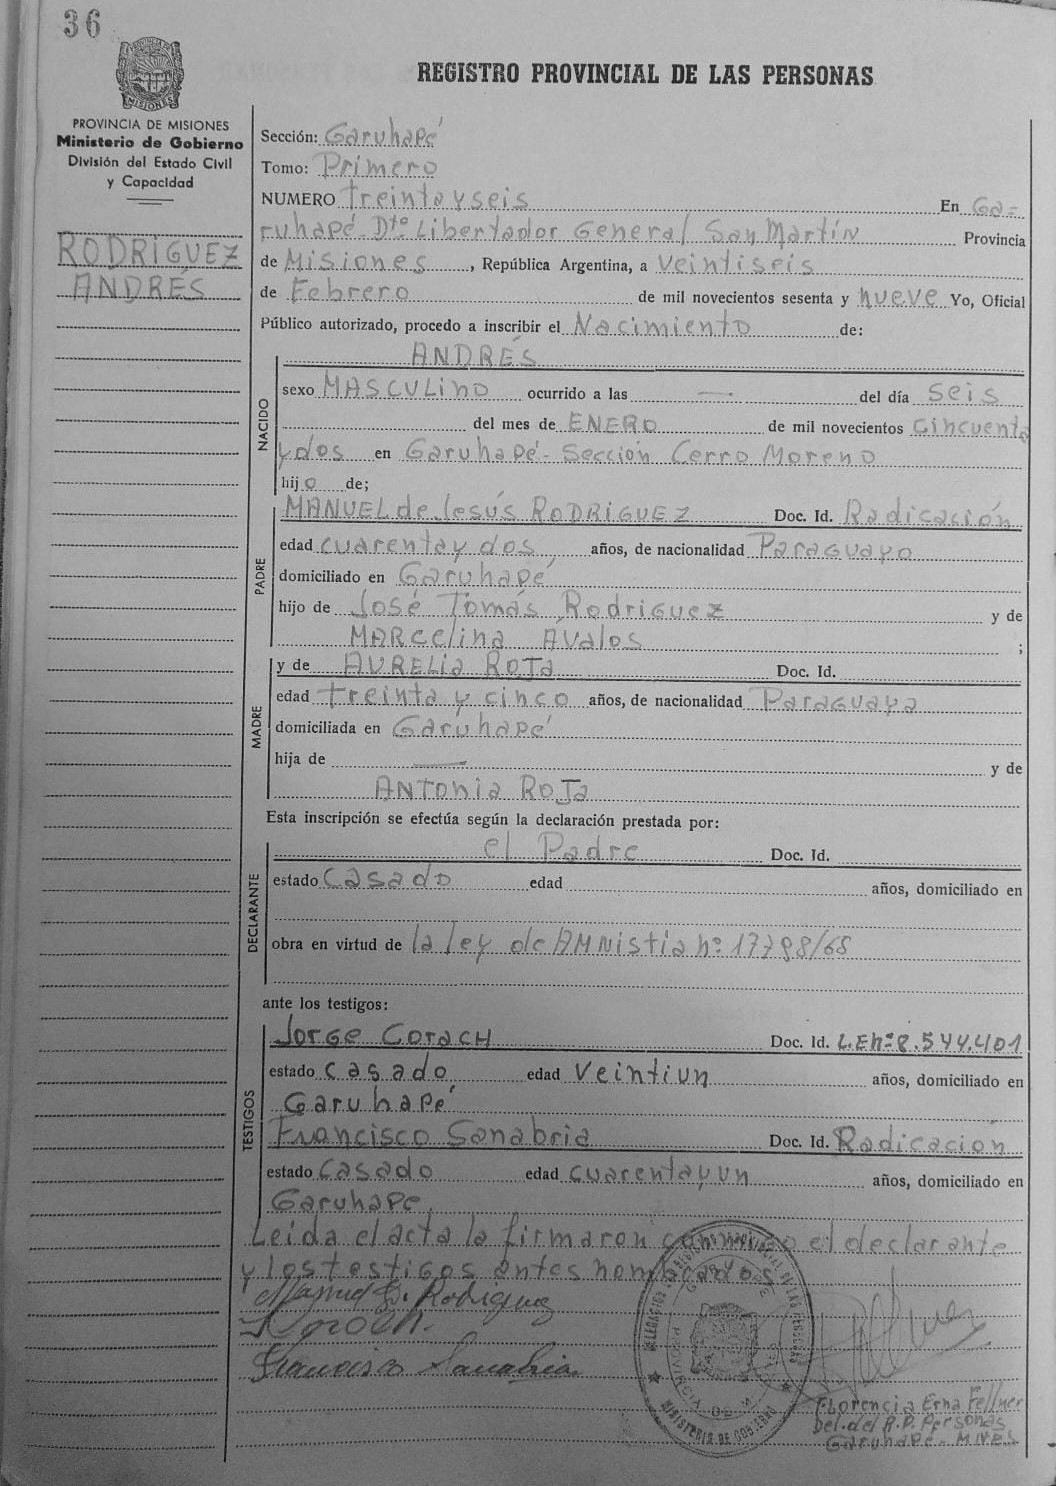 36
REGISTRO PROVINCIAL DE LAS PERSONAS
PROVINCIA DE MISIONES
Ministerio de Gobierno
División del Estado Civil
y Capacidad
RODRIGUEZ
ANDRÉS
Sección: Garuhapé
Tomo: Primero
NUMERO treinta y seis En Ga-
ruhapé-Dto. Libertador General San Martín Provincia
de Misiones, República Argentina, a veintiseis
de Febrero de mil novecientos sesenta y nueve Yo, Oficial
Público autorizado, procedo a inscribir el Nacimiento de:
NACIDO
ANDRÉS
sexo MASCULINO ocurrido a las — del día seis
del mes de ENERO de mil novecientos cincuenta
y dos en Garuhapé-Sección Cerro Moreno
hijo de;
PADRE
MANUEL de Jesús RODRIGUEZ Doc. Id. Radicación
edad cuarenta y dos años, de nacionalidad Paraguayo
domiciliado en Garuhapé
hijo de José Tomás Rodriguez y de
MARcelina Ávalos ;
MADRE
y de AURELIA ROJA Doc. Id.
edad treinta y cinco años, de nacionalidad Paraguaya
domiciliada en Garuhapé
hija de — y de
ANTONIA ROJA
Esta inscripción se efectúa según la declaración prestada por:
DECLARANTE
el Padre Doc. Id.
estado casado edad años, domiciliado en
obra en virtud de la ley de AMNistia nº 17798/68
ante los testigos:
TESTIGOS
Jorge CORACH Doc. Id. L.E nº 8.544.401
estado casado edad veintiun años, domiciliado en
Garuhapé
Francisco Sanabria Doc. Id. Radicación
estado casado edad cuarenta y un años, domiciliado en
Garuhapé
Leida el acta la firmaron conmigo el declarante
y los testigos antes nombrados
Manuel D. Rodriguez
Francisco Sanabria
PROVINCIA DE
MINISTERIO DE GOBIERNO
Florencia Erna Fellner
Del. del R.P. Personas
Garuhapé - Mnes